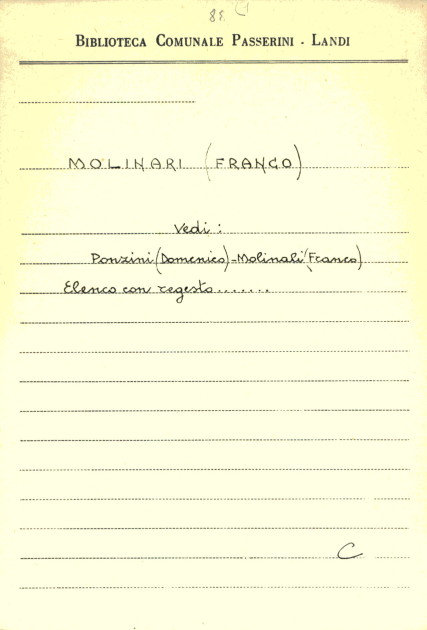 85.
BIBLIOTECA COMUNALE PASSERINI - LANDI
MOLINARI (FRANCO)
Vedi:
Ponzini (Domenico)-Molinali (Franco)
Elenco con regesto.......
C